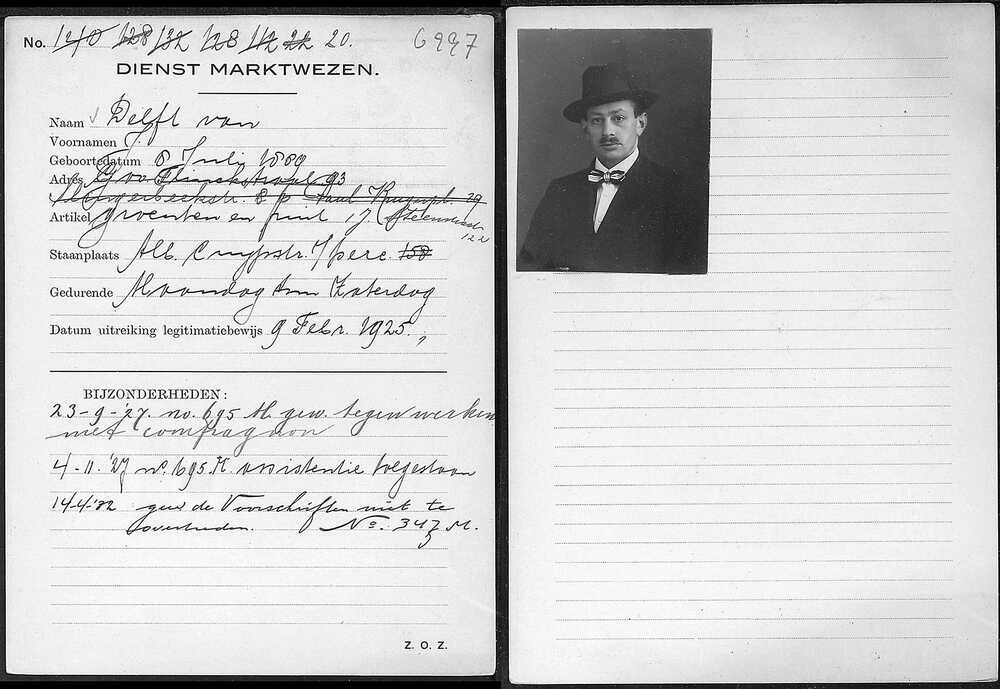 No. 1210 128 132 128 112 22 20. 6997
DIENST MARKTWEZEN.
Naam Delft van
Voornamen J.
Geboortedatum 8 Juli 1889
Adres Gov. Flinckstraat 93
8 Paul Krugerpl. 29
Artikel groenten en fruit
122
Staanplaats Alb. Cuypstr. 158
Gedurende Maandag t/m Zaterdag
Datum uitreiking legitimatiebewijs 9 Febr. 1925.
BIJZONDERHEDEN:
23-9-'27. no. 695 M. gew. tegen werken
met compagnon
4-11-'27 no. 695 M. assistentie toegestaan
14-4-'32 gew de Voorschriften niet te
overtreden. No. 347 M.
Z. O. Z.